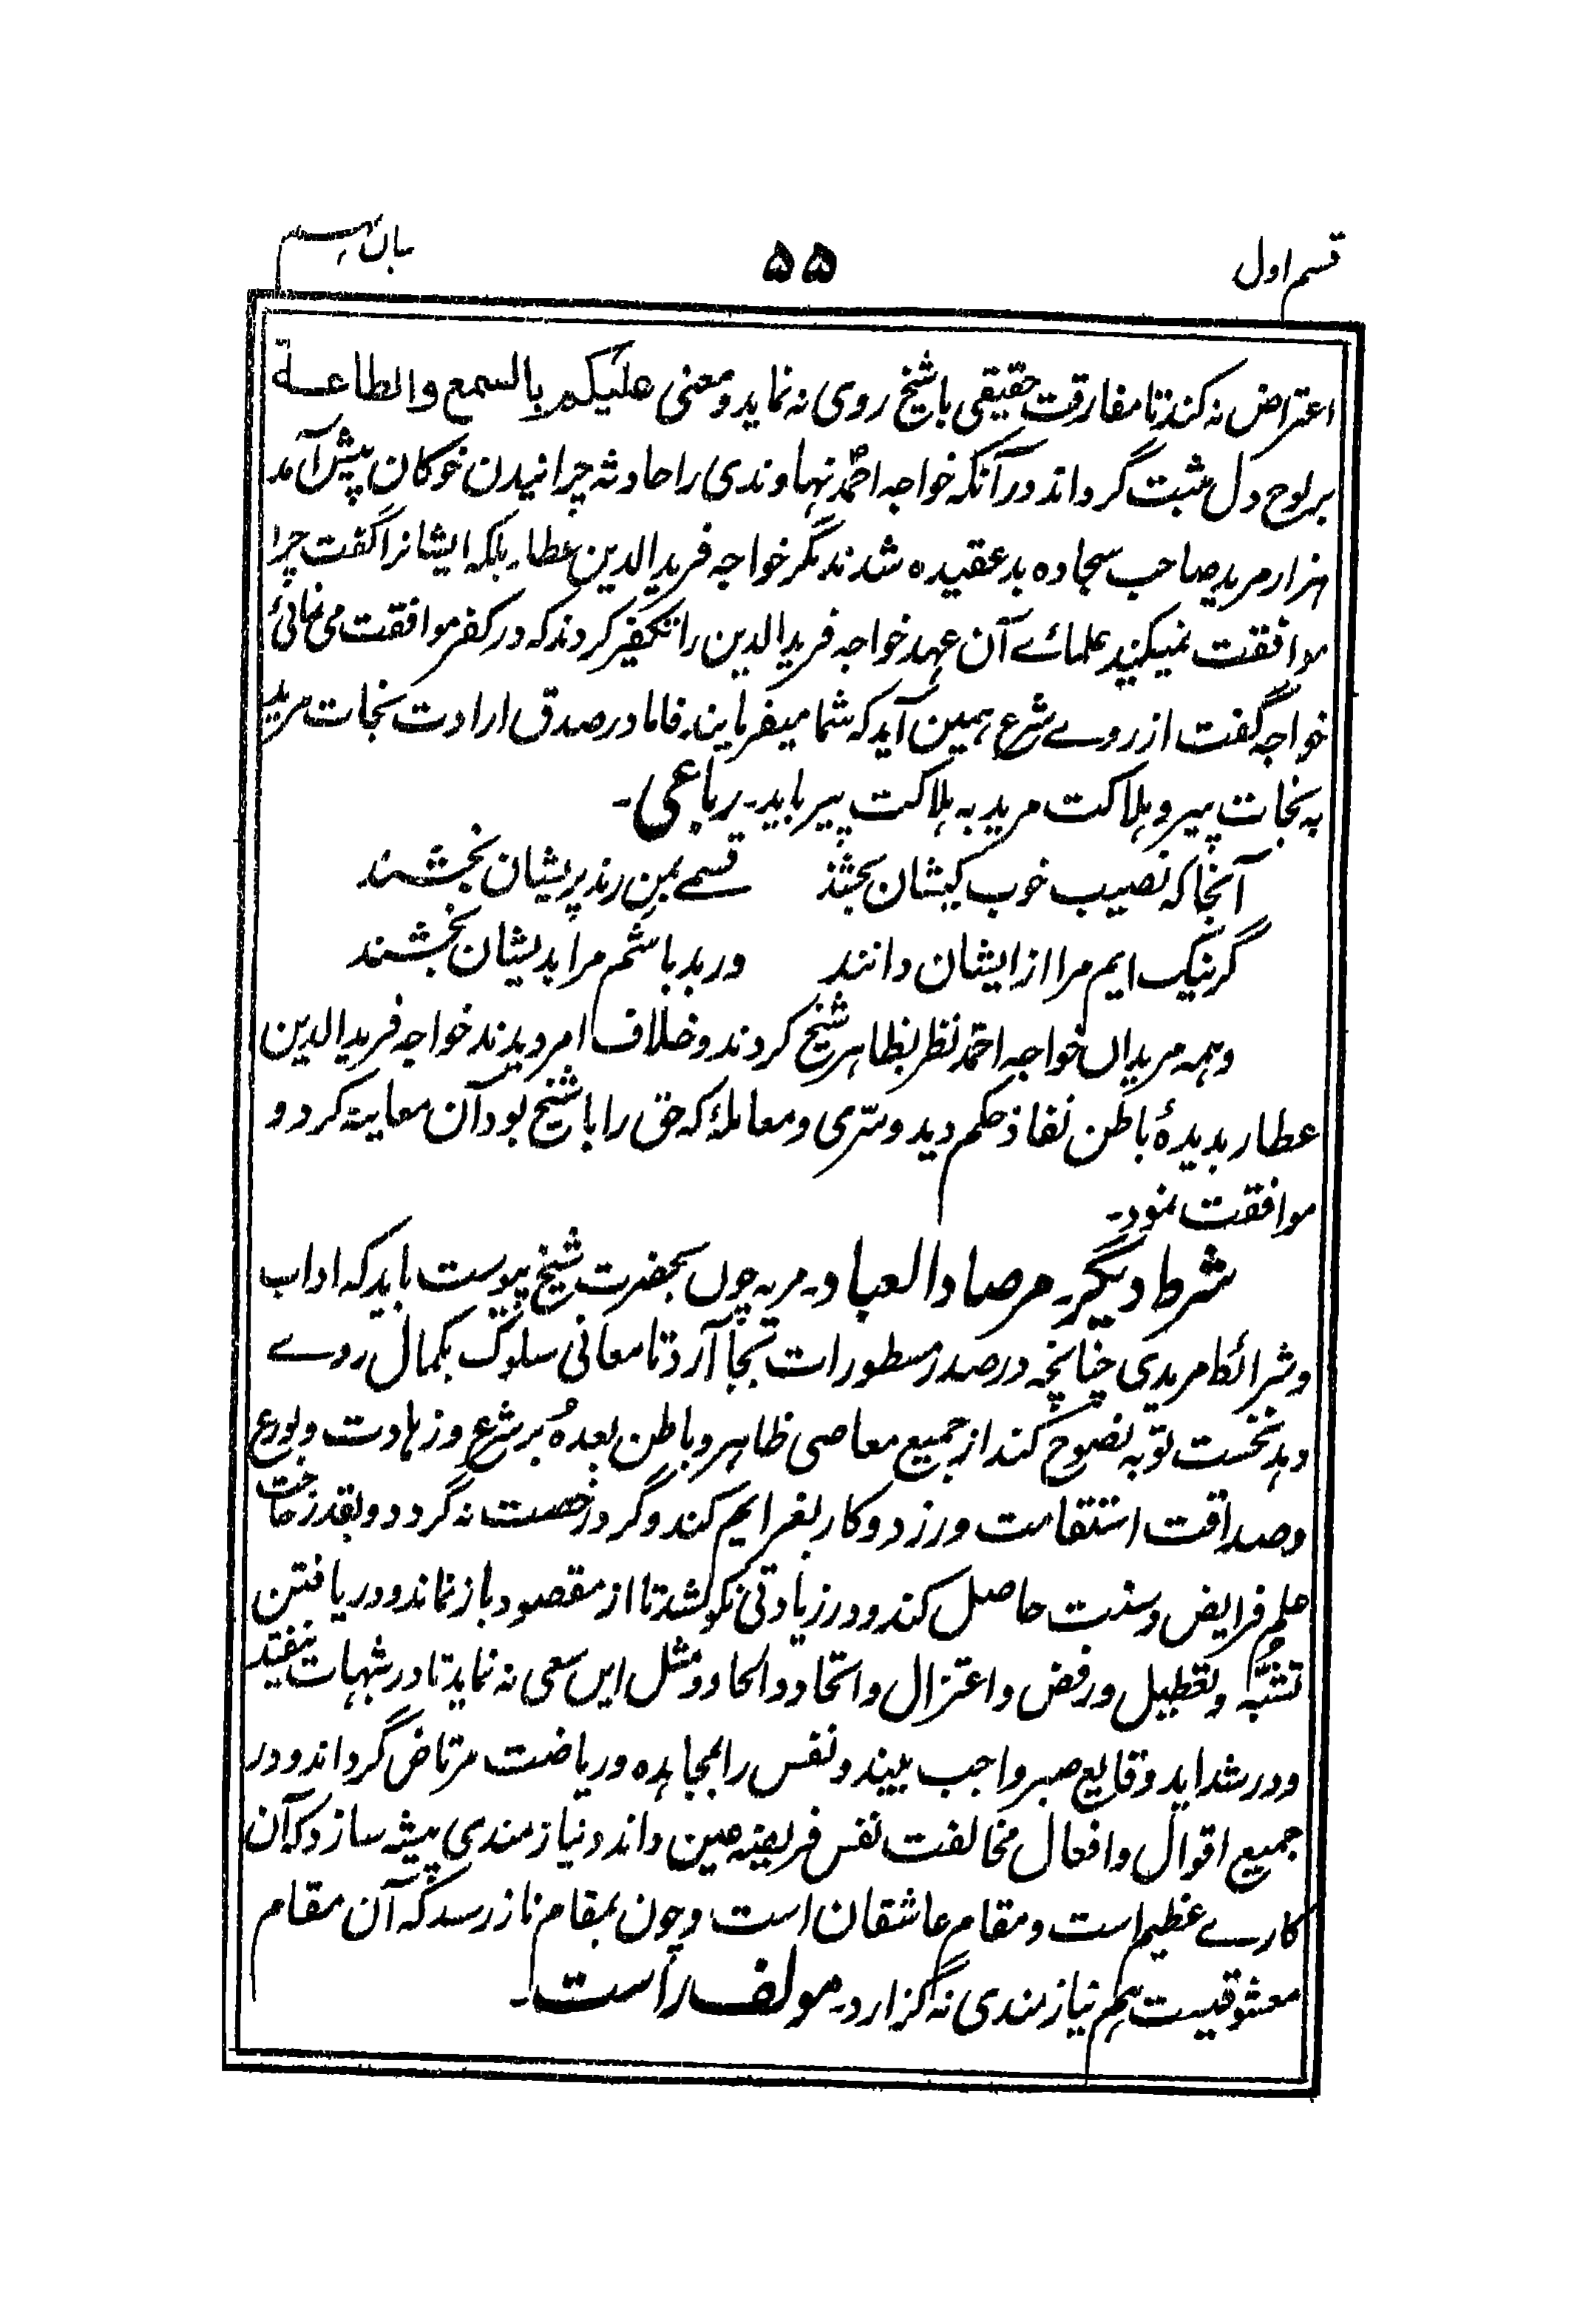 قسم اول
۵۵
بیان
اعتراض نه کند تا مفارقت حقیقی با شیخ روی نه نماید و معنی علیکم بالسمع والطاعة
بر لوح دل ثبت گرداند در آنکه خواجه احمد نهاوندی را حادثه چرانیدن خوکان پیش آمد
هزار مرید صاحب سجاده بد عقیده شدند مگر خواجه فرید الدین عطار بلکه ایشانرا گفت چرا
موافقت نمیکنید علمائے آن عهد خواجه فرید الدین را تکفیر کردند که در کفر موافقت می نمائی
خواجه گفت از روے شرع همین آید که شما میفرمایند فاما در صدق ارادت نجات مرید
به نجات پیر و هلاکت مرید به هلاکت پیر باید۔ رباعی۔
آنجا که نصیب خوب کیشان بخشند قسمے بمن رند پریشان بخشند
گر نیک ایم مرا از ایشان دانند ور بد باشم مرا بدیشان بخشند
و همه مریداں خواجه احمد نظر بظاهر شیخ کردند و خلاف امر دیدند خواجه فرید الدین
عطار بدیدهٔ باطن نفاذ حکم دید و سّری و معاملهٔ که حق را با شیخ بود آن معاینه کرد و
موافقت نمود۔
شرط دیگر۔ مرصاد العباد۔ مرید چوں بحضرت شیخ پیوست باید که اداب
و شرائط مریدی چنانچه در صدر مسطورات بجا آرد تا معانی سلوک بکمال روے
دهد نخست توبه نصوح کند از جمیع معاصی ظاهر و باطن بعدهٗ بر شرع و زهادت و بورع
و صداقت استقامت ورزد و کار بغرایم کند و گرد رخصت نه گردد و بقدر حاجت
علم فرایض و سنت حاصل کند و در زیادتی نکوشد تا از مقصود باز نماند و دریافتن
تشبّه و تعطیل و رفض و اعتزال و اتحاد و الحاد و مثل ایں سعی نه نماید تا در شبهات نیفتید
و در شداید و قایع صبر واجب بیند و نفس را بمجاهده و ریاضت مرتاض گرداند و در
جمیع اقوال و افعال مخالفت نفس فریضه عین داند و نیازمندی پیشه سازد که آن
کارے عظیم است و مقام عاشقان است و چون بمقام ناز رسد که آن مقام
معشوقیست هم نیازمندی نه گزارد۔ مولف راست۔